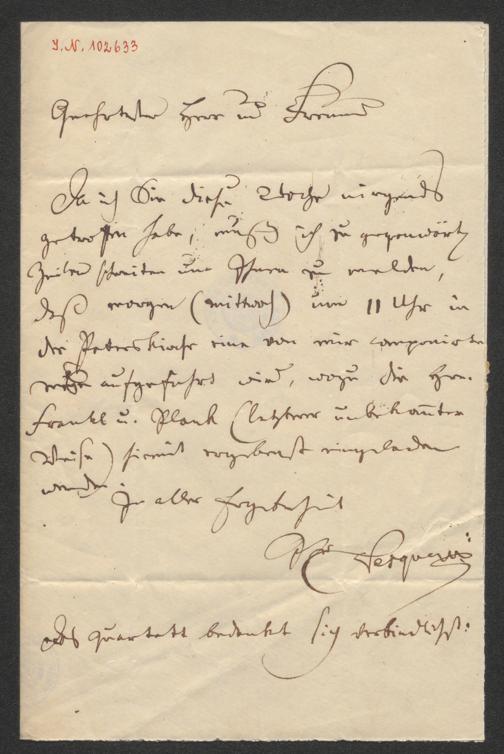 I.N. 102633
Geehrtester Herr und Freund
Da ich Sie diese Woche nirgends
getroffen habe, muß ich zu gegenwärtg
Zeilen schreiten um Ihnen zu melden,
daß morgen (Mittwoch) um 11 Uhr in
der Peterskirche eine von mir componirte
Messe aufgeführt wird, wozu die Hrn.
Frankl u. Plank (letzterer unbekannter
Weise) hiemit ergebenst eingeladen
werden.
In aller Ergebenheit
Das Quartett bedankt sich verbindlichst.